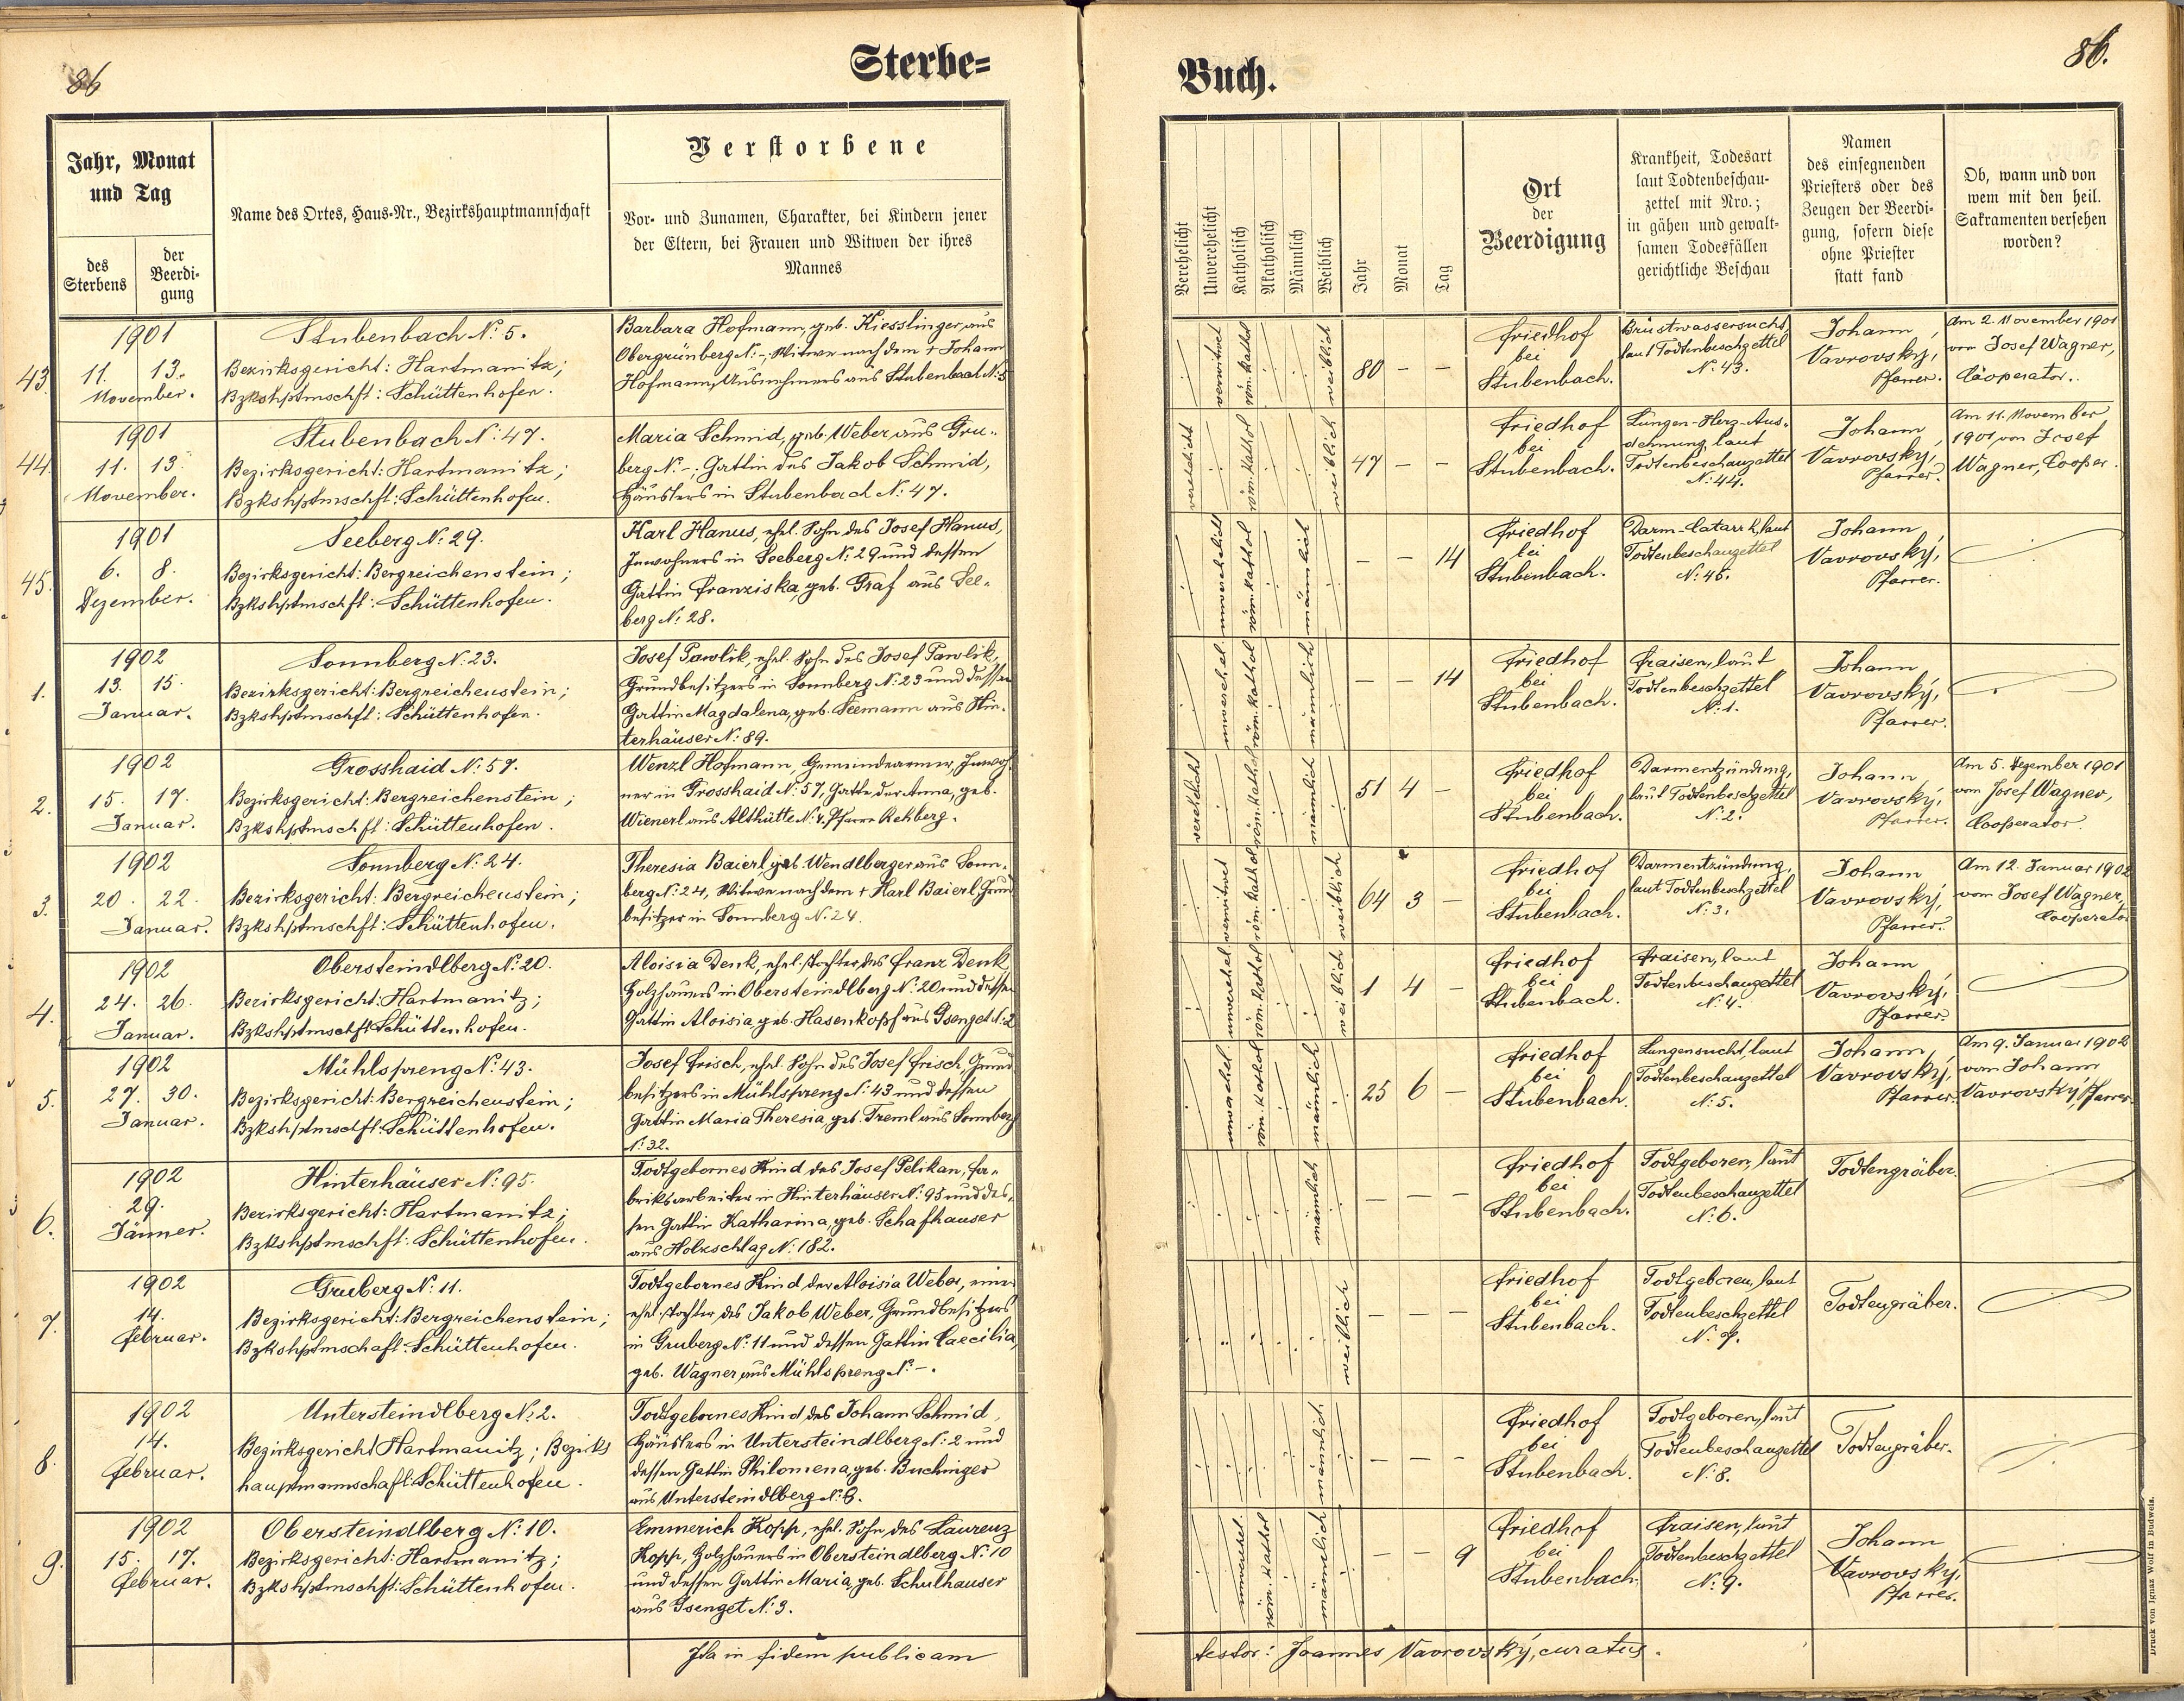 86
Sterbe=
Jahr, Monat
und Tag
des
Sterbens
der
Beerdi-
gung
Name des Ortes, Haus-Nr., Bezirkshauptmannschaft
Verstorbene
Vor- und Zunamen, Charakter, bei Kindern jener
der Eltern, bei Frauen und Witwen der ihres
Mannes
43.
1901
11. 13.
November.
Stubenbach N: 5.
Bezirksgericht: Hartmanitz;
Bzkshptmschft: Schüttenhofen.
Barbara Hofmann, geb. Kiesslinger, aus
Obergrünberg N: -, Witwe nach dem + Johann
Hofmann, Ausnehmers aus Stubenbach N: 5
44.
1901
11. 13.
November.
Stubenbach N: 47.
Bezirksgericht: Hartmanitz;
Bzkshptmschft: Schüttenhofen.
Maria Schmid, geb. Weber, aus Gru-
berg N: -; Gattin des Jakob Schmid,
Häuslers in Stubenbach N: 47.
45.
1901
6. 8.
Dezember.
Seeberg N: 29.
Bezirksgericht: Bergreichenstein;
Bzkshptmschft: Schüttenhofen.
Karl Hanus, ehel. Sohn des Josef Hanus,
Inwohners in Seeberg N: 29 und dessen
Gattin Franziska, geb. Graf aus See-
berg N: 28.
1.
1902
13. 15.
Januar.
Sonnberg N: 23.
Bezirksgericht: Bergreichenstein;
Bzkshptmschft: Schüttenhofen.
Josef Pawlik, ehel. Sohn des Josef Pawlik,
Grundbesitzers in Sonnberg N: 23 und dessen
Gattin Magdalena, geb. Seemann aus Hin-
terhäuser N: 89.
2.
1902
15. 17.
Januar.
Grosshaid N: 57.
Bezirksgericht: Bergreichenstein;
Bzkshptmschft: Schüttenhofen.
Wenzl Hofmann, Gemeindearmer, Inwoh-
ner in Grosshaid N: 57, Gatte der Anna, geb.
Wienerl aus Althütte N: 4, Pfarre Rehberg.
3.
1902
20. 22.
Januar.
Sonnberg N: 24.
Bezirksgericht: Bergreichenstein;
Bzkshptmschft: Schüttenhofen.
Theresia Baierl, geb. Wendlberger aus Sonn-
berg N: 24, Witwe nach dem + Karl Baierl, Grund
besitzer in Sonnberg N: 24.
4.
1902
24. 26.
Januar.
Obersteindlberg N: 20.
Bezirksgericht: Hartmanitz;
Bzkshptmschft: Schüttenhofen.
Aloisia Denk, ehel. Tochter des Franz Denk
Holzhauers in Obersteindlberg N: 20 und dessen
Gattin Aloisia, geb. Hasenkopf aus Gsenget N: 2
5.
1902
27. 30.
Januar.
Mühlspreng N: 43.
Bezirksgericht: Bergreichenstein;
Bzkshptmschft: Schüttenhofen.
Josef Frisch, ehel. Sohn des Josef Frisch, Grund
besitzers in Mühlspreng N: 43 und dessen
Gattin Maria Theresia, geb. Treml aus Sonnberg
N: 32.
6.
1902
29.
Jänner.
Hinterhäuser N: 95.
Bezirksgericht: Hartmanitz;
Bzkshptmschft: Schüttenhofen.
Todtgebornes Kind des Josef Pelikan, Fa-
briksarbeiter in Hinterhäuser N: 95 und des-
sen Gattin Katharina, geb. Schafhauser
aus Holzschlag N: 182.
7.
1902
14.
Februar.
Gruberg N: 11.
Bezirksgericht: Bergreichenstein;
Bzkshptmschaft: Schüttenhofen.
Todtgebornes Kind der Aloisia Weber, einer
ehel. Tochter des Jakob Weber, Grundbesitzers
in Gruberg N: 11 und dessen Gattin Caecilia,
geb. Wagner, aus Mühlspreng N: -.
8.
1902
14.
Februar.
Untersteindlberg N: 2.
Bezirksgericht Hartmanitz; Bezirks
hauptmannschaft: Schüttenhofen.
Todtgebornes Kind des Johann Schmid,
Häuslers in Untersteindlberg N: 2 und
dessen Gattin Philomena, geb. Buchinger
aus Untersteindlberg N: 8.
9.
1902
15. 17.
Februar.
Obersteindlberg N: 10.
Bezirksgericht: Hartmanitz;
Bzkshptmschft: Schüttenhofen.
Emmerich Kopp, ehel. Sohn des Laurenz
Kopp, Holzhauers in Obersteindlberg N: 10
und dessen Gattin Maria, geb. Schulhauser
aus Gsenget N: 3.
Ita in fidem publicam
86.
Buch.
Verehelicht
Unverehelicht
Katholisch
Akatholisch
Männlich
Weiblich
Jahr
Monat
Tag
Ort
der
Beerdigung
Krankheit, Todesart
laut Todtenbeschau-
zettel mit Nro.;
in gähen und gewalt-
samen Todesfällen
gerichtliche Beschau
Namen
des einsegnenden
Priesters oder des
Zeugen der Beerdi-
gung, sofern diese
ohne Priester
statt fand
Ob, wann und von
wem mit den heil.
Sakramenten versehen
worden?
verwitwet
röm. kathol
weiblich
80 - -
Friedhof
bei
Stubenbach.
Brustwassersucht,
laut Todtenbeschzettel
N: 43.
Johann
Vavrovský,
Pfarrer.
Am 2. November 1901
von Josef Wagner,
Cooperator.
verehelicht
röm. kathol
weiblich
47 - -
Friedhof
bei
Stubenbach.
Lungen-Herz-Aus-
dehnung, laut
Todtenbeschauzettel
N: 44.
Johann
Vavrovský,
Pfarrer.
Am 11. November
1901, von Josef
Wagner, Cooper.
unverehelicht
röm. kathol
männlich
- - 14
Friedhof
bei
Stubenbach.
Darm-Catarrh, laut
Todtenbeschauzettel
N: 45.
Johann
Vavrovský,
Pfarrer.
unverehel.
röm. kathol
männlich
- - 14
Friedhof
bei
Stubenbach.
Fraisen, laut
Todtenbeschzettel
N: 1.
Johann
Vavrovský,
Pfarrer.
verehelicht
röm. kathol
männlich
51 4 -
Friedhof
bei
Stubenbach.
Darmentzündung,
laut Todtenbeschzettel
N: 2.
Johann
Vavrovský,
Pfarrer.
Am 5. Dezember 1901
vom Josef Wagner,
Cooperator.
verwitwet
röm. kathol
weiblich
64 3 -
Friedhof
bei
Stubenbach.
Darmentzündung,
laut Todtenbeschzettel
N: 3.
Johann
Vavrovský,
Pfarrer.
Am 12. Januar 1902
vom Josef Wagner,
Cooperator
unverehel
röm. kathol
weiblich
1 4 -
Friedhof
bei
Stubenbach.
Fraisen, laut
Todtenbeschauzettel
N: 4.
Johann
Vavrovský,
Pfarrer.
unverehel.
röm. kathol
männlich
25 6 -
Friedhof
bei
Stubenbach.
Lungensucht, laut
Todtenbeschauzettel
N: 5.
Johann
Vavrovský,
Pfarrer.
Am 9. Januar 1902
vom Johann
Vavrovský, Pfarrer
männlich
- - -
Friedhof
bei
Stubenbach.
Todtgeboren, laut
Todtenbeschauzettel
N: 6.
Todtengräber.
weiblich
- - -
Friedhof
bei
Stubenbach.
Todtgeboren, laut
Todtenbeschzettel
N: 7.
Todtengräber.
männlich
- - -
Friedhof
bei
Stubenbach.
Todtgeboren, laut
Todtenbeschauzettel
N: 8.
Todtengräber.
unverehel.
röm. kathol
männlich
- - 9
Friedhof
bei
Stubenbach.
Fraisen, laut
Todtenbeschzettel
N: 9.
Johann
Vavrovský,
Pfarrer.
testor: Joannes Vavrovský, curatus.
Druck von Ignaz Wolf in Budweis.